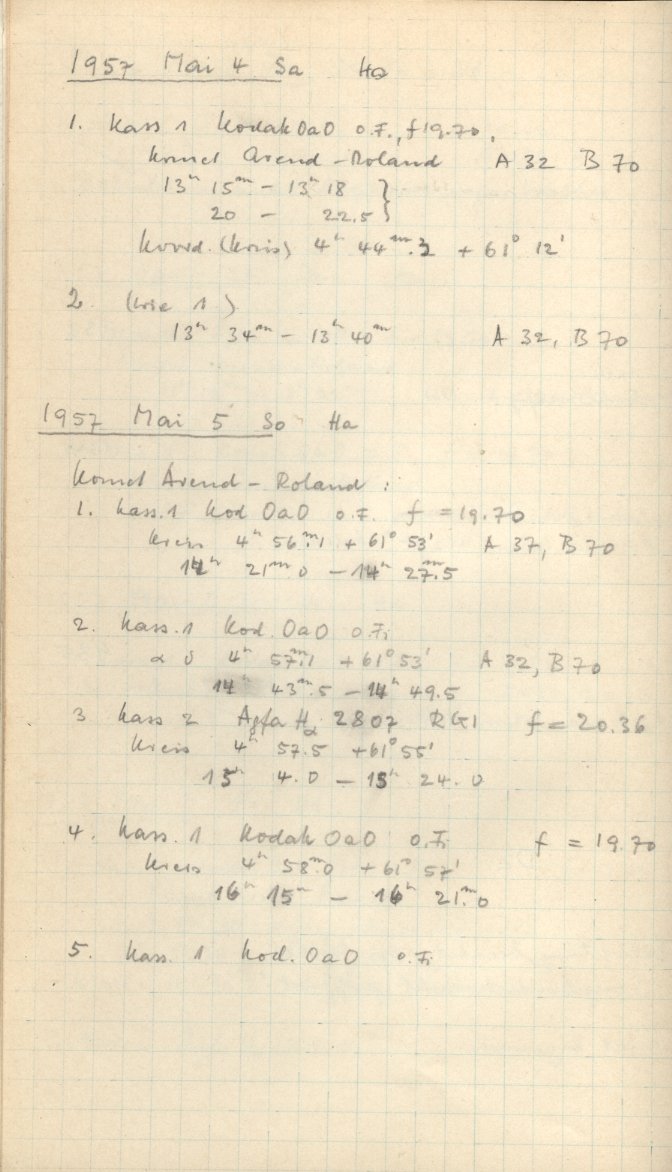 1957 Mai 4 Sa Ha
1. Kass 1 Kodak OaO o.F., f 19.70.
Komet Arend-Roland A 32 B 70
13ʰ 15ᵐ - 13ʰ 18 }
20 - 22.5 }
Koord. (Kreis) 4ʰ 44ᵐ.2 + 61° 12'
2. (wie 1)
13ʰ 34ᵐ - 13ʰ 40ᵐ A 32, B 70
1957 Mai 5 So Ha
Komet Arend-Roland :
1. Kass. 1 Kod OaO o.F. f = 19.70
Kreis 4ʰ 56ᵐ.1 + 61° 53' A 37, B 70
14ʰ 21ᵐ.0 - 14ʰ 27ᵐ.5
2. Kass. 1 Kod. OaO o.Fi
α δ 4ʰ 57ᵐ.1 + 61° 53' A 32, B 70
14ʰ 43ᵐ.5 - 14ʰ 49.5
3 Kass 2 Agfa Hα 2807 RG1 f = 20.36
Kreis 4ʰ 57.5 + 61° 55'
15ʰ 4.0 - 15ʰ 24.0
4. Kass. 1 Kodak OaO o.Fi f = 19.70
Kreis 4ʰ 58ᵐ.0 + 61° 57'
16ʰ 15ᵐ - 16ʰ 21ᵐ.0
5. Kass. 1 Kod. OaO o.Fi